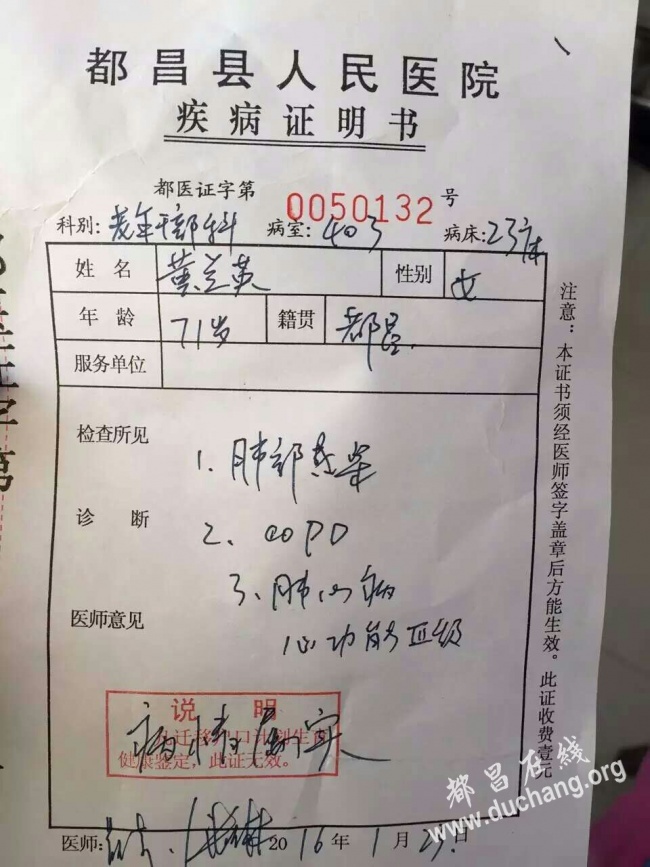 都昌县人民医院
疾病证明书
都医证字第 0050132 号
科别:老年干部科 病室:403 病床:23床
姓名 黄兰英 性别 女
年龄 71岁 籍贯 都昌
服务单位
检查所见
1、肺部感染
诊断
2、COPD
3、肺心病
医师意见
心功能Ⅲ级
说明
健康鉴定,此证无效。
病情属实
医师: 2016年1月 日
注意:本证书须经医师签字盖章后方能生效。此证收费壹元
都昌在线
www.duchang.org